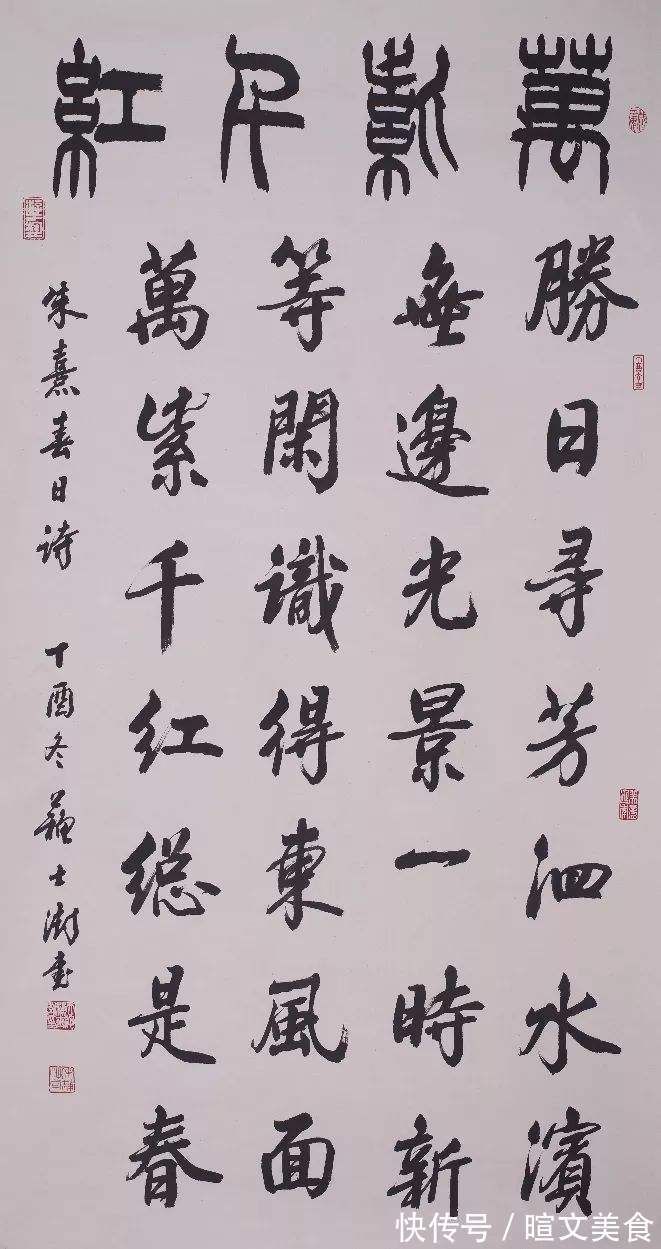 萬紫千紅
勝日尋芳泗水濱
無邊光景一時新
等閑識得東風面
萬紫千红總是春
朱熹春日詩 丁酉冬蘇士澍書
快传号/暄文美食